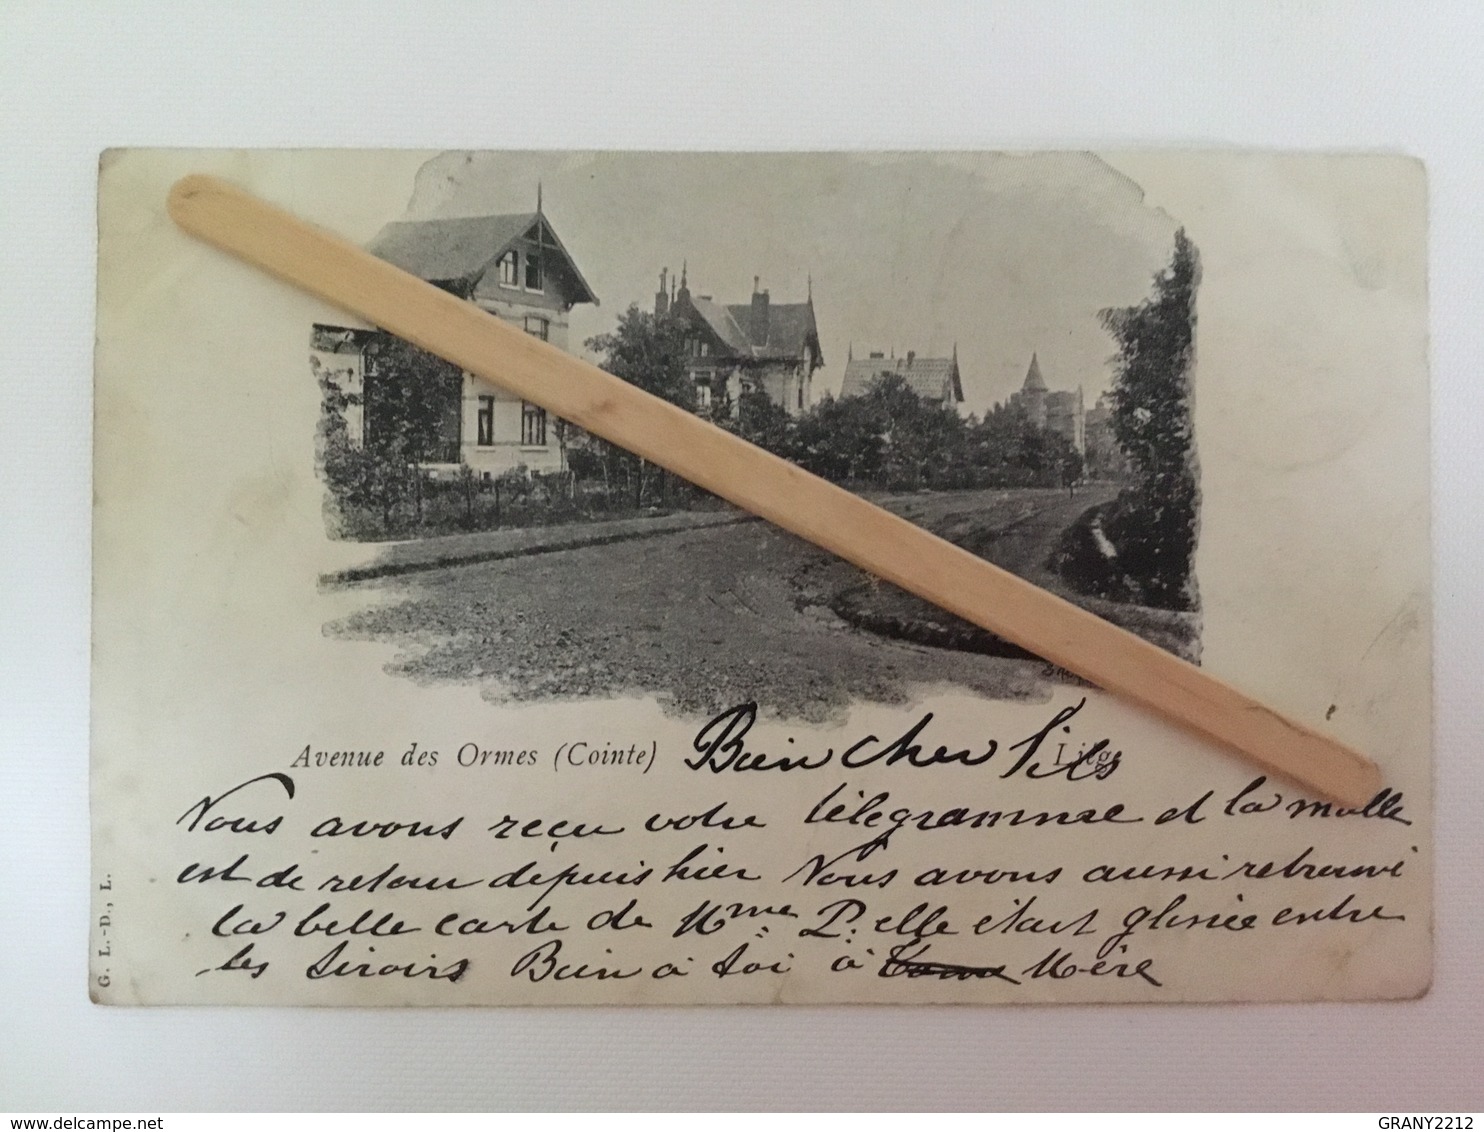 Avenue des Ormes (Cointe) Bien cher Fils Liége
Nous avons reçu votre télégramme et la malle
est de retour depuis hier Nous avons aussi retrouvé
la belle carte de Mme P. elle était glissée entre
les tiroirs Bien à toi à Mère
G. L.-D., L.
www.delcampe.net
GRANY2212